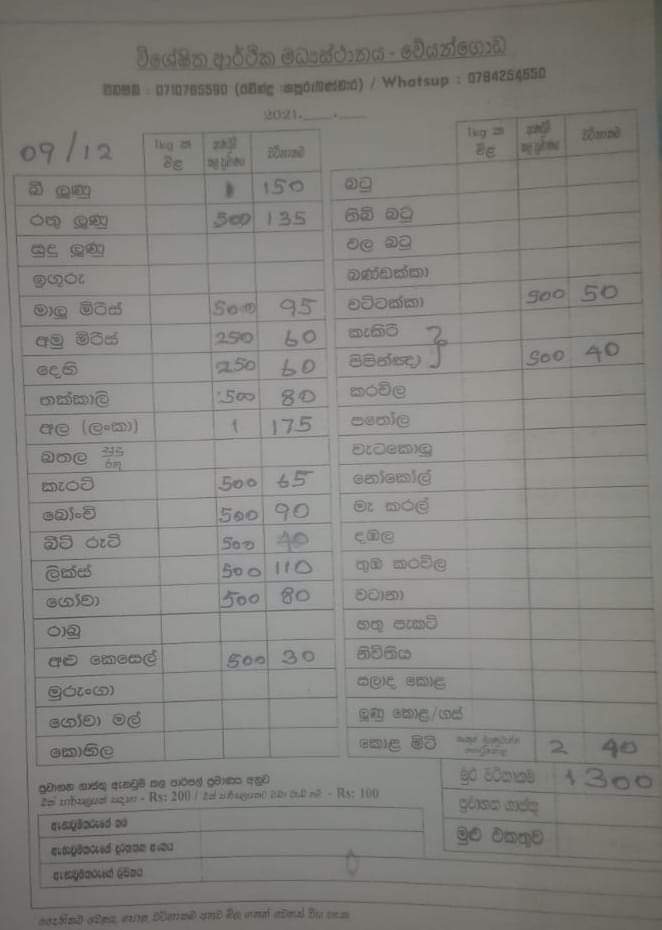 විශේෂිත ආර්ථික මධ්‍යස්ථානය - වේයන්ගොඩ
Whatsup : 0784254650
2021.
09/12
1kg ක මිළ වටිනාකම
බී ලූණු 150
රතු ලූණු 500 135
සුදු ලූණු
ඉඟුරු
මාලු මිරිස් 500 95
අමු මිරිස් 250 60
දෙහි 250 60
තක්කාලි 500 80
අල (ලංකා) 1 175
බතල සුදු රතු
කැරට් 500 65
බෝංචි 500 90
බීට් රූට් 500 40
ලීක්ස් 500 110
ගෝවා 500 80
රාබු
අළු කෙසෙල් 500 30
මුරුංගා
ගෝවා මල්
කොහිල
1kg ක මිළ වටිනාකම
බටු
තිබ් බටු
වල බටු
බණ්ඩක්කා
වට්ටක්කා 500 50
කැකිරි
පිපින්ඤා 500 40
කරවිල
පතෝල
වැටකොලු
නෝකෝල්
මෑ කරල්
දඹල
තුඹ කරවිල
වටානා
හතු පැකට්
නිවිතිය
සලාද කොළ
ලූණු කොළ/ගස්
කොළ මිටි 2 40
මුළු වටිනාකම 1300
ප්‍රවාහන ගාස්තු
මුළු එකතුව
ප්‍රවාහන ගාස්තු ඇනවුම් කල පාර්සල් ප්‍රමාණය අනුව
- Rs: 200 / - Rs: 100
ඇනවුම්කරුගේ නම
ඇනවුම්කරුගේ දුරකතන අංකය
ඇනවුම්කරුගේ ලිපිනය